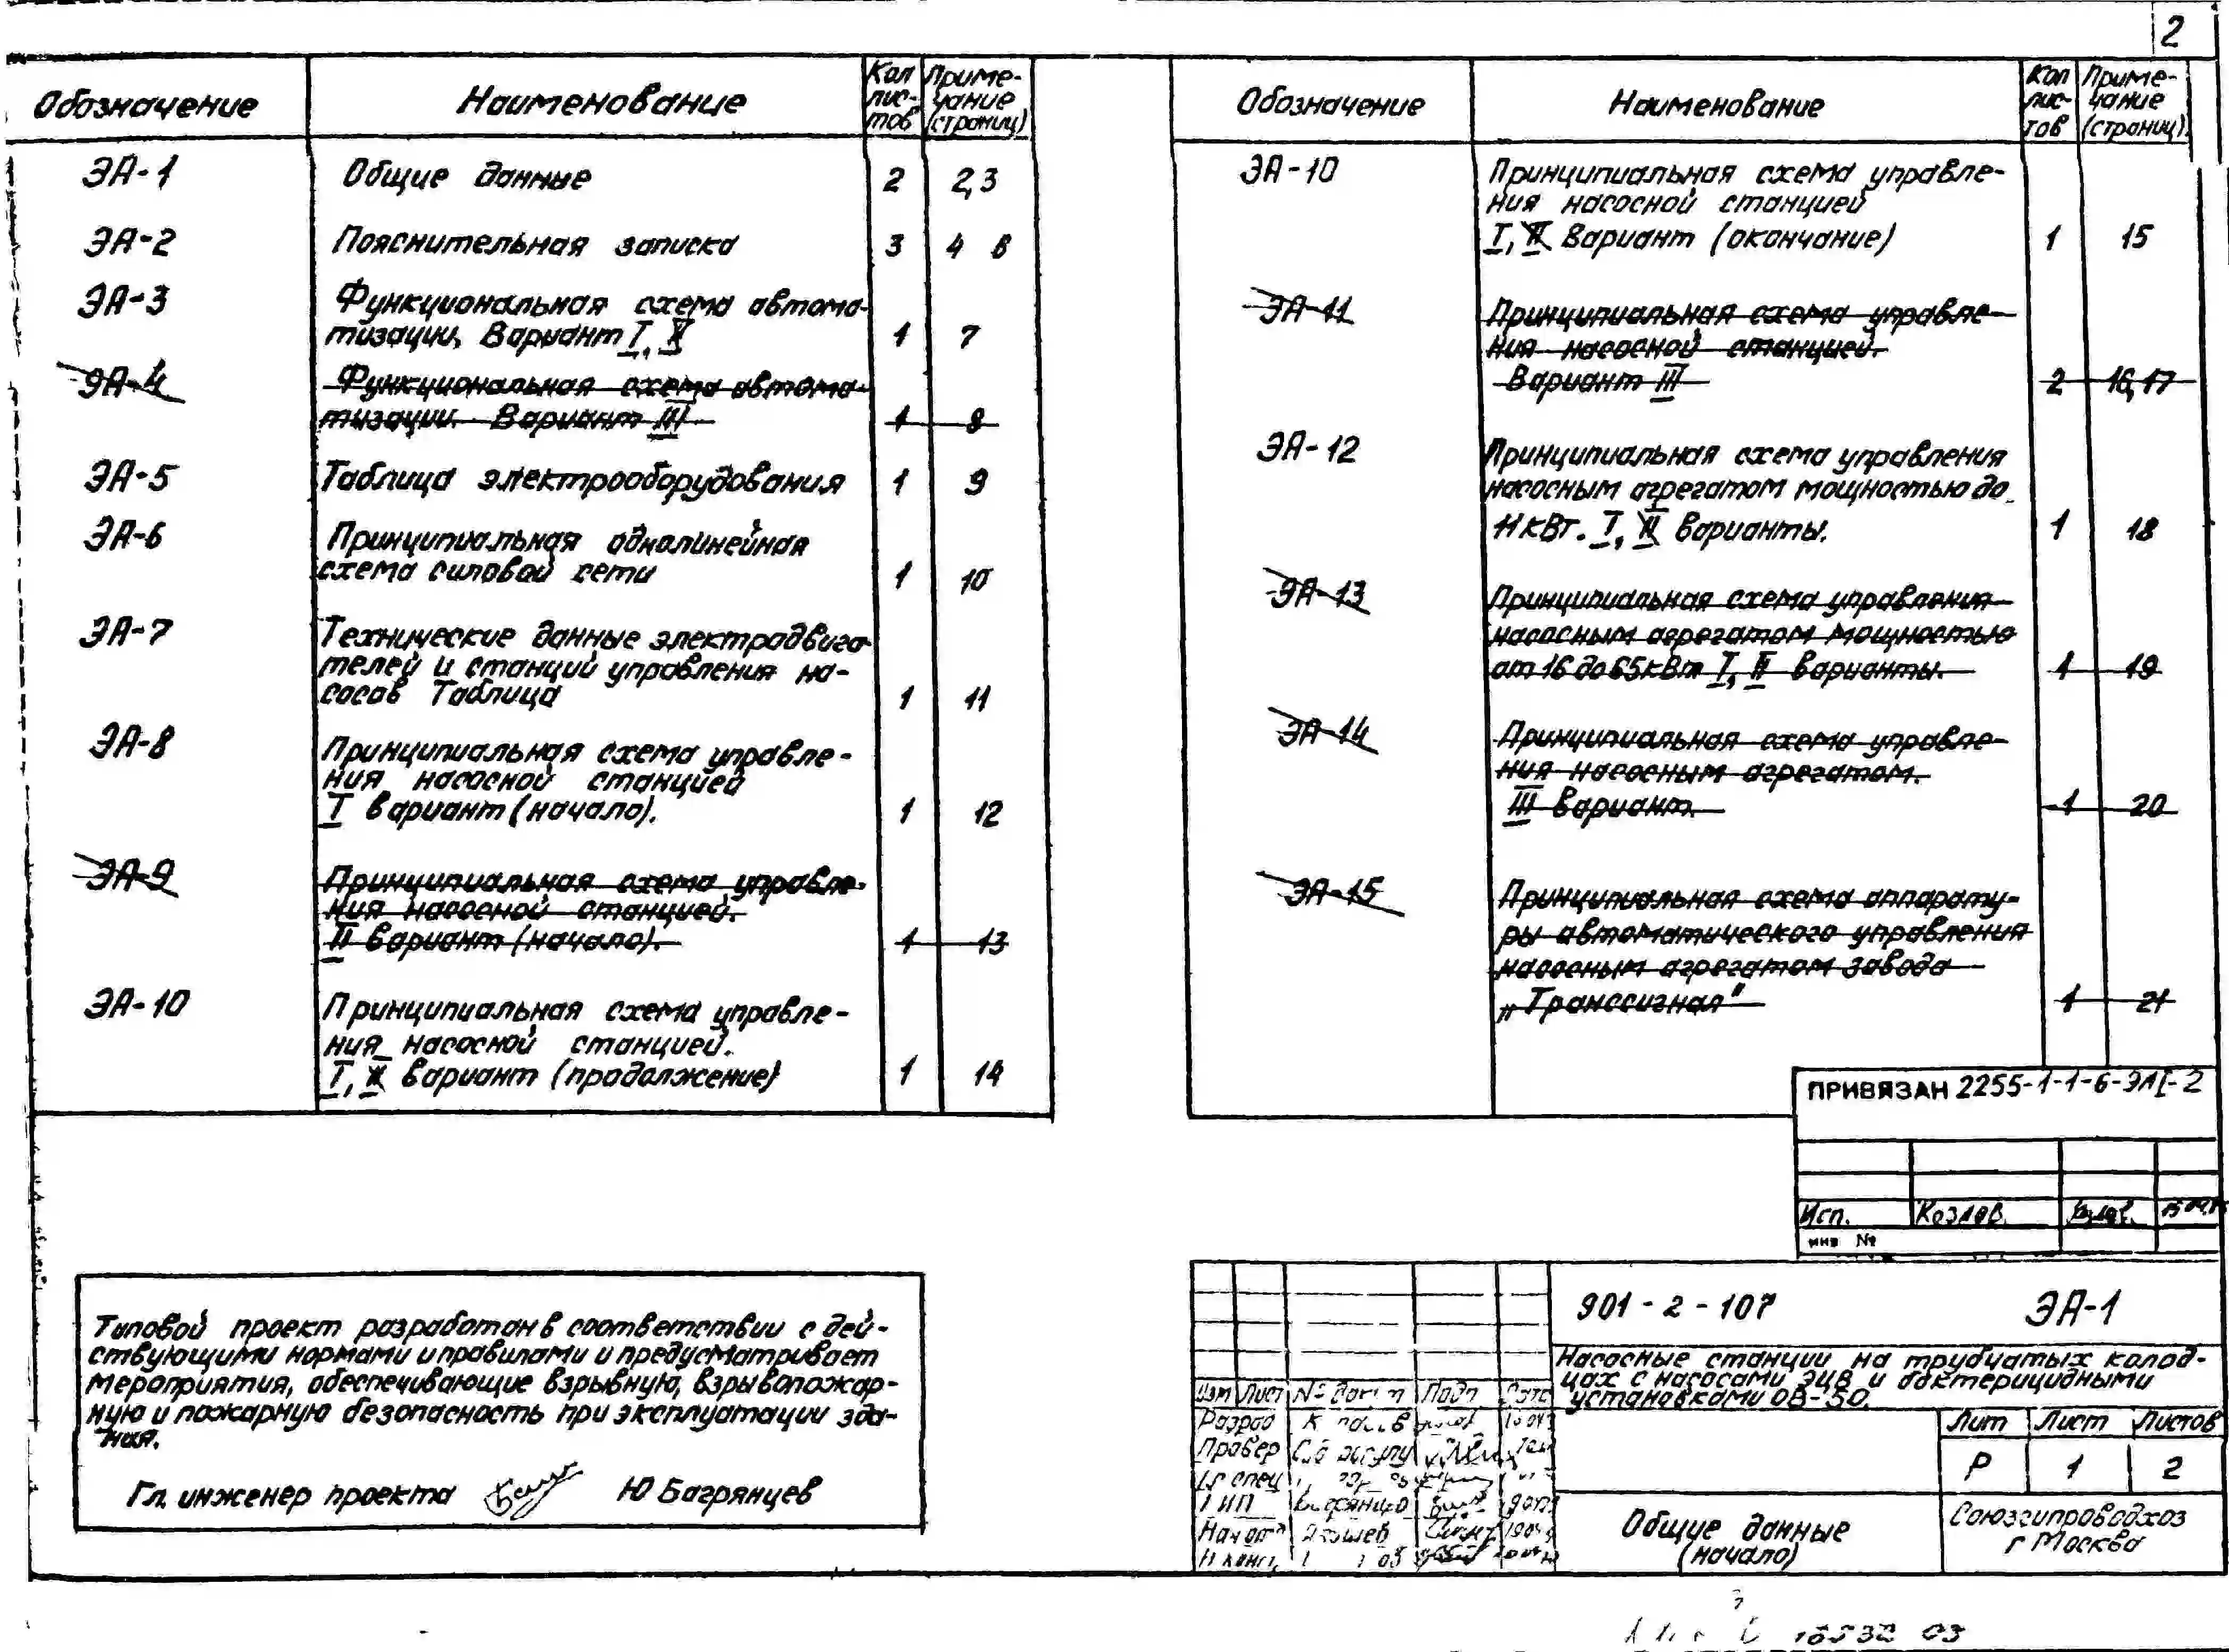 2
Обозначение
Наименование
Кол лис- тов
Приме- чание (страниц)
ЭА-1
Общие данные
2
2,3
ЭА-2
Пояснительная записка
3
4 6
ЭА-3
Функциональная схема автома-
тизации. Вариант I, II
1
7
ЭА-4
Функциональная схема автома-
тизации. Вариант III
1
8
ЭА-5
Таблица электрооборудования
1
9
ЭА-6
Принципиальная однолинейная
схема силовой сети
1
10
ЭА-7
Технические данные электродвига-
телей и станций управления на-
сосов Таблица
1
11
ЭА-8
Принципиальная схема управле-
ния насосной станцией
I вариант (начало).
1
12
ЭА-9
Принципиальная схема управле-
ния насосной станцией.
II вариант (начало).
1
13
ЭА-10
Принципиальная схема управле-
ния насосной станцией.
I, II вариант (продолжение)
1
14
Обозначение
Наименование
Кол лис- тов
Приме- чание (страниц).
ЭА-10
Принципиальная схема управле-
ния насосной станцией
I, II Вариант (окончание)
1
15
ЭА-11
Принципиальная схема управле-
ния насосной станцией.
Вариант III
2
16,17
ЭА-12
Принципиальная схема управления
насосным агрегатом мощностью до
11 кВт. I, II варианты.
1
18
ЭА-13
Принципиальная схема управления
насосным агрегатом мощностью
от 16 до 65 кВт I, II варианты.
1
19
ЭА-14
Принципиальная схема управле-
ния насосным агрегатом.
III вариант.
1
20
ЭА-15
Принципиальная схема аппарату-
ры автоматического управления
насосным агрегатом завода
„Транссигнал"
1
21
ПРИВЯЗАН 2255-1-1-6-ЭАI-2
Исп. Козлов.
инв №
Типовой проект разработан в соответствии с дей-
ствующими нормами и правилами и предусматривает
мероприятия, обеспечивающие взрывную, взрывопожар-
ную и пожарную безопасность при эксплуатации зда-
ния.
Гл. инженер проекта Ю Багрянцев
901-2-107 ЭА-1
Насосные станции на трубчатых колод-
цах с насосами ЭЦВ и бактерицидными
установками ОВ-50.
Изм Лист № докум Подп Дата
Разраб
Провер
Гл спец
ГИП
Нач отд
Н контр
Лит Лист Листов
Р 1 2
Общие данные
(начало)
Союзгипроводхоз
г Москва